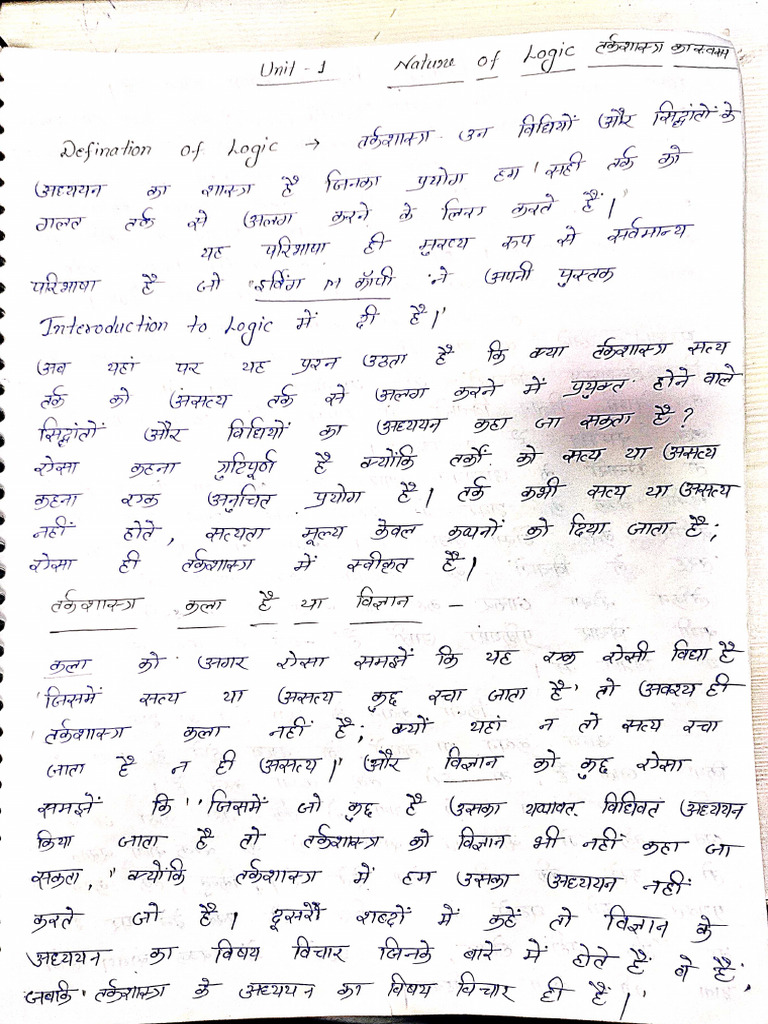 Unit - 1 Nature of Logic तर्कशास्त्र का स्वरूप
Defination of Logic → तर्कशास्त्र उन विधियों और सिद्धांतों के
अध्ययन का शास्त्र है जिनका प्रयोग हम 'सही तर्क को
गलत तर्क से अलग करने के लिए करते हैं।'
यह परिभाषा ही मुख्य रूप से सर्वमान्य
परिभाषा है जो इर्विंग M कॉपी ने अपनी पुस्तक
Introduction to Logic में दी है।'
अब यहां पर यह प्रश्न उठता है कि क्या तर्कशास्त्र सत्य
तर्क को असत्य तर्क से अलग करने में प्रयुक्त होने वाले
सिद्धांतों और विधियों का अध्ययन कहा जा सकता है?
ऐसा कहना त्रुटिपूर्ण है क्योंकि तर्कों को सत्य या असत्य
कहना एक अनुचित प्रयोग है। तर्क कभी सत्य या असत्य
नहीं होते, सत्यता मूल्य केवल कथनों को दिया जाता है;
ऐसा ही तर्कशास्त्र में स्वीकृत है।
तर्कशास्त्र कला है या विज्ञान -
कला को अगर ऐसा समझें कि यह एक ऐसी विद्या है
'जिसमें सत्य या असत्य कुछ रचा जाता है' तो अवश्य ही
'तर्कशास्त्र कला नहीं है; क्यों यहां न तो सत्य रचा
जाता है न ही असत्य।' और विज्ञान को कुछ ऐसा
समझें कि ''जिसमें जो कुछ है उसका यथावत विधिवत अध्ययन
किया जाता है तो तर्कशास्त्र को विज्ञान भी नहीं कहा जा
सकता,'' क्योंकि तर्कशास्त्र में हम उसका अध्ययन नहीं
करते जो है। दूसरें शब्दों में कहें तो विज्ञान के
अध्ययन का विषय विचार जिनके बारे में होते हैं वे हैं;
जबकि 'तर्कशास्त्र के अध्ययन का विषय विचार ही हैं।'